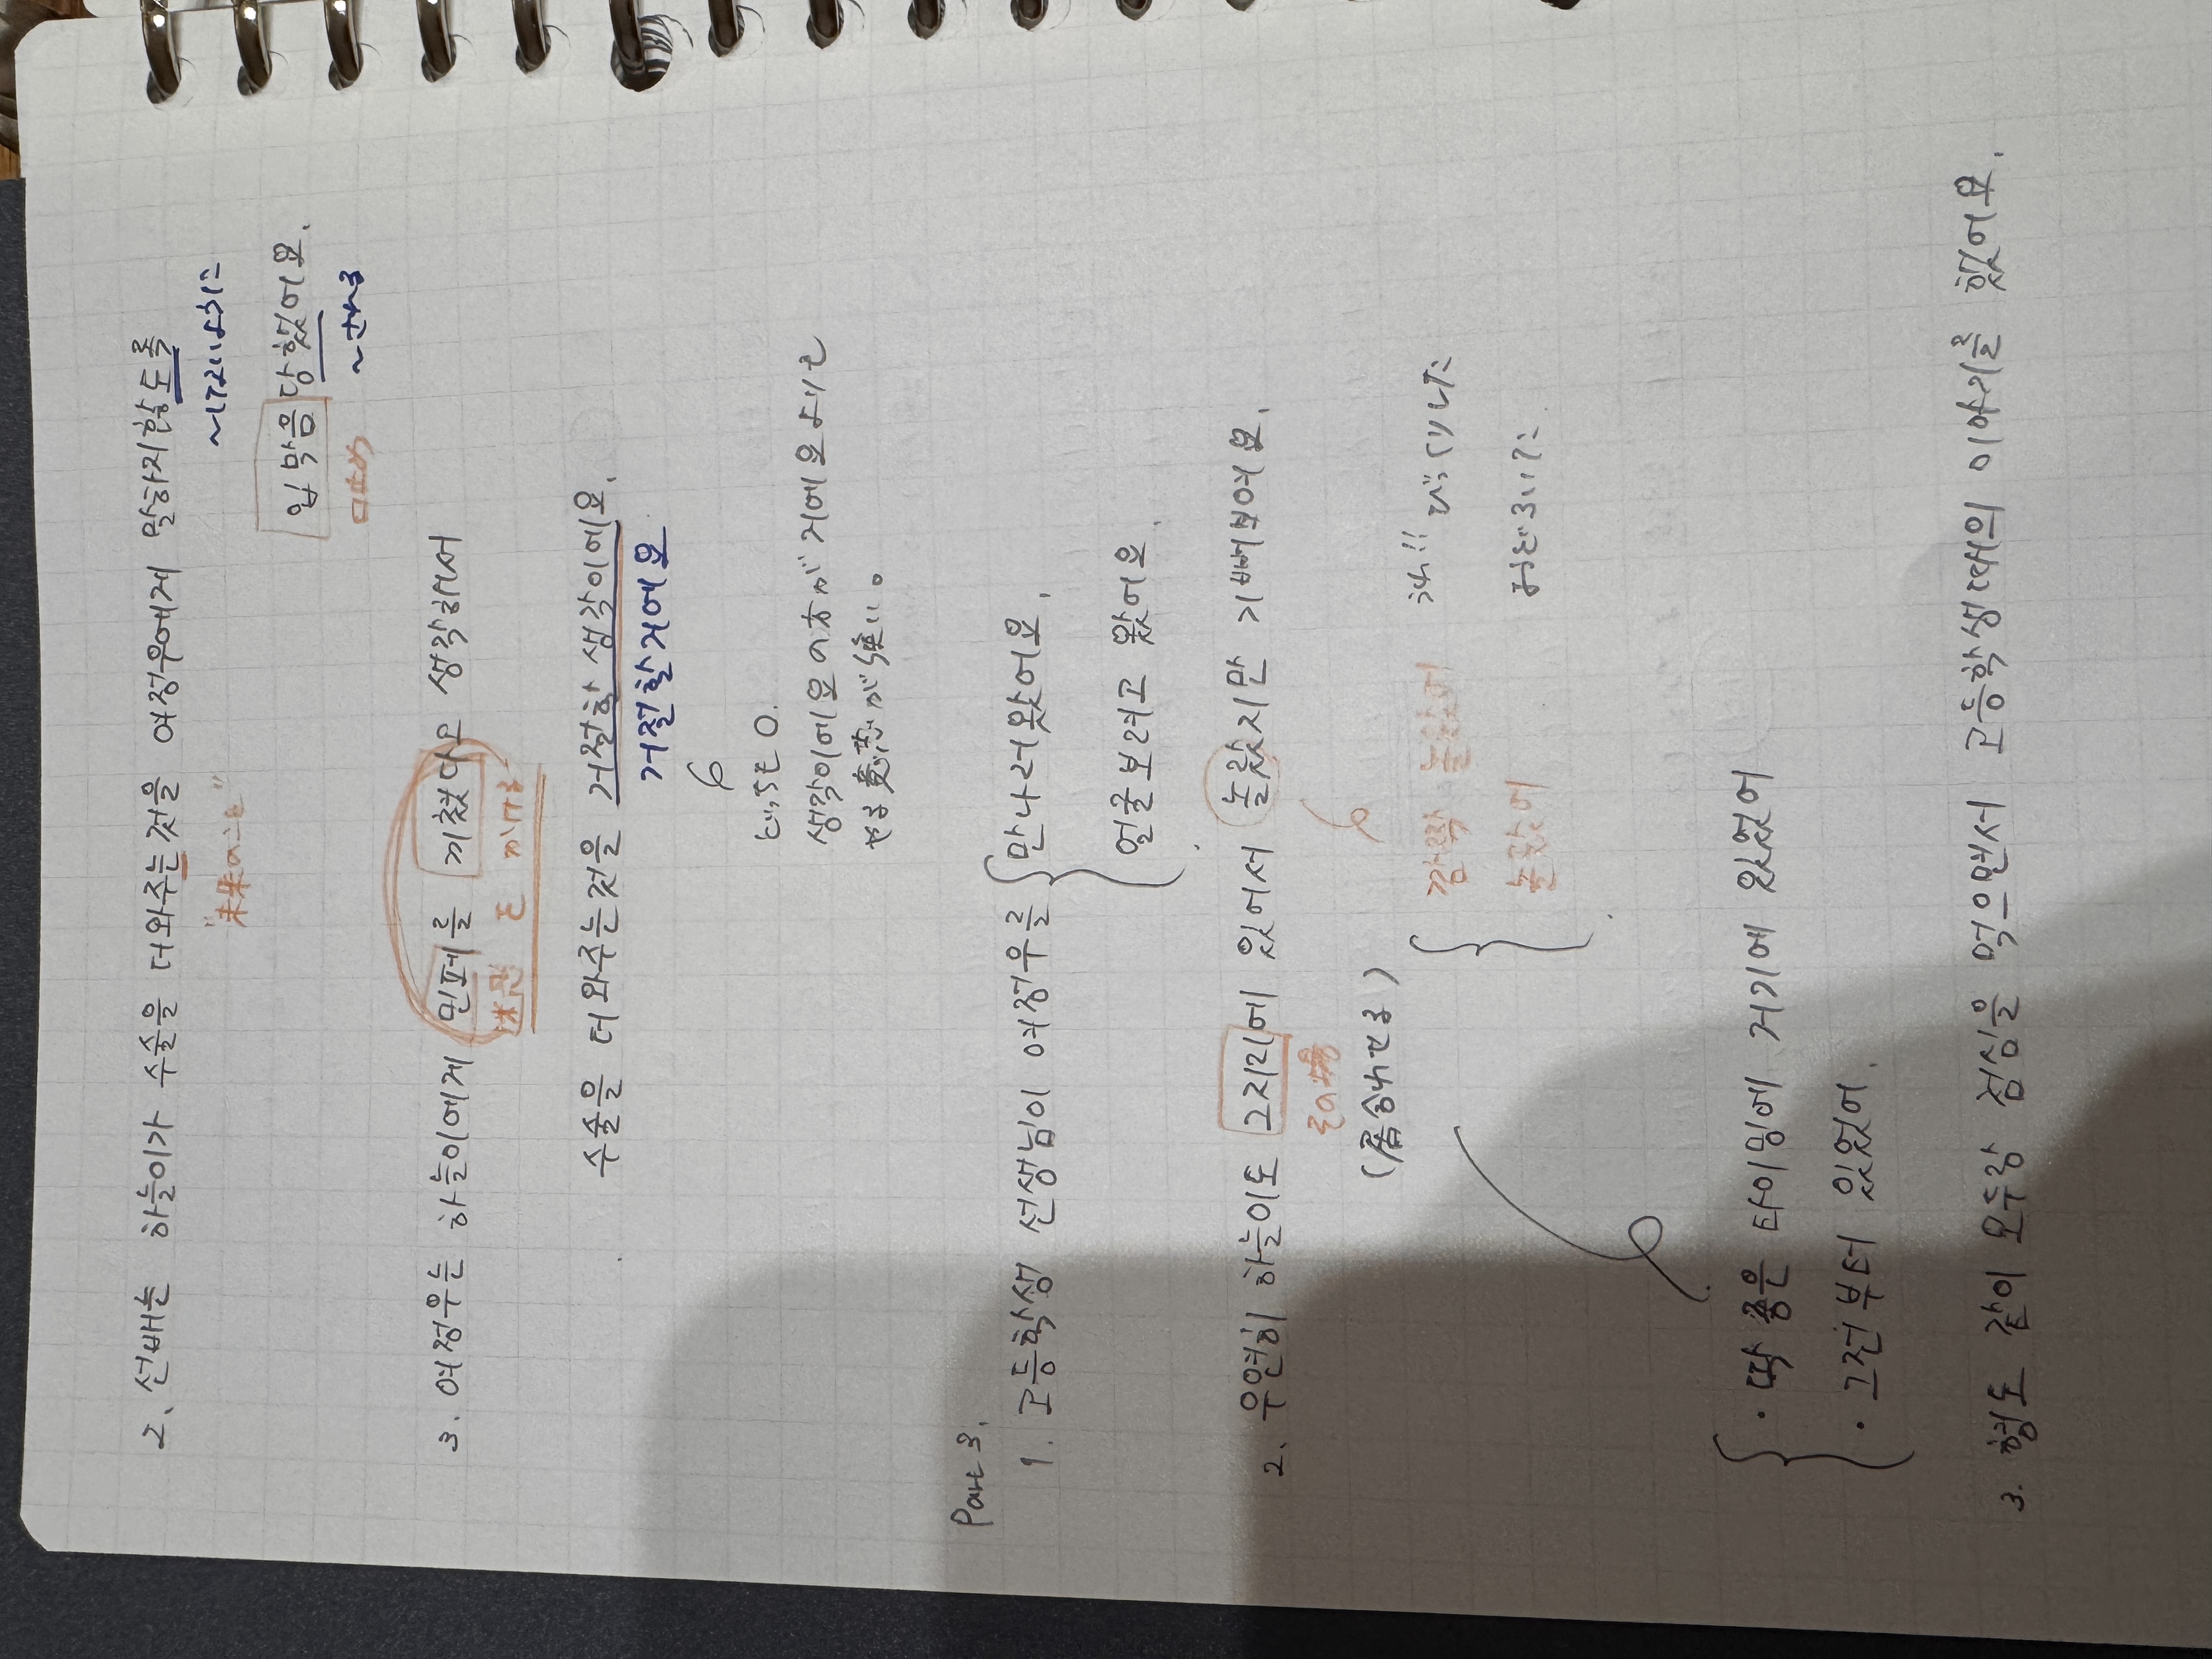 2. 선배는 하늘이가 수술을 더 와주는것을 여정우에게 말하지않도록
"未来のこと" ~しないように
입막음당했어요.
口止め ~される
3. 여정우는 하늘이에게 민폐를 끼쳤다고 생각해서
迷惑 を かける
수술을 더 와주는것을 거절할 생각이에요.
거절할거에요
どっちも O.
생각이에요の方が 거에요よりも
やる意志が強い。
Part 3.
1. 고등학생 선생님이 여정우를 만나러왔어요.
얼굴보려고 왔어요.
2. 우연히 하늘이도 그자리에 있어서 놀랐지만 기뻐보여요.
その場
(居合わせる)
깜짝 놀랐어 うわ!! びっくりした
놀랐어 おどろいた
・딱 좋은 타이밍에 거기에 있었어
・그전부터 있었어.
3. 형도 같이 모두랑 점심을 먹으면서 고등학생때의 이야기를 했어요.